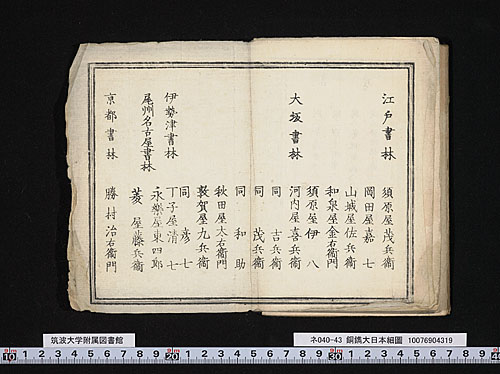 江戸書林 須原屋茂兵衛
岡田屋嘉七
山城屋佐兵衛
和泉屋金右衛門
須原屋伊八
大坂書林 河内屋喜兵衛
同 吉兵衛
同 茂兵衛
同 和助
秋田屋太右衛門
敦賀屋九兵衛
同 彦七
伊勢津書林 丁子屋清七
尾州名古屋書林 永樂屋東四郎
菱屋藤兵衛
京都書林 勝村治右衛門
筑波大学附属図書館
ネ040-43 銅鐫大日本細圖 10076904319
10 1 2 3 4 5 6 7 8 9 20 1 2 3 4 5 6 7 8 9 30 1 2 3 4 5 6 7 8 9 40